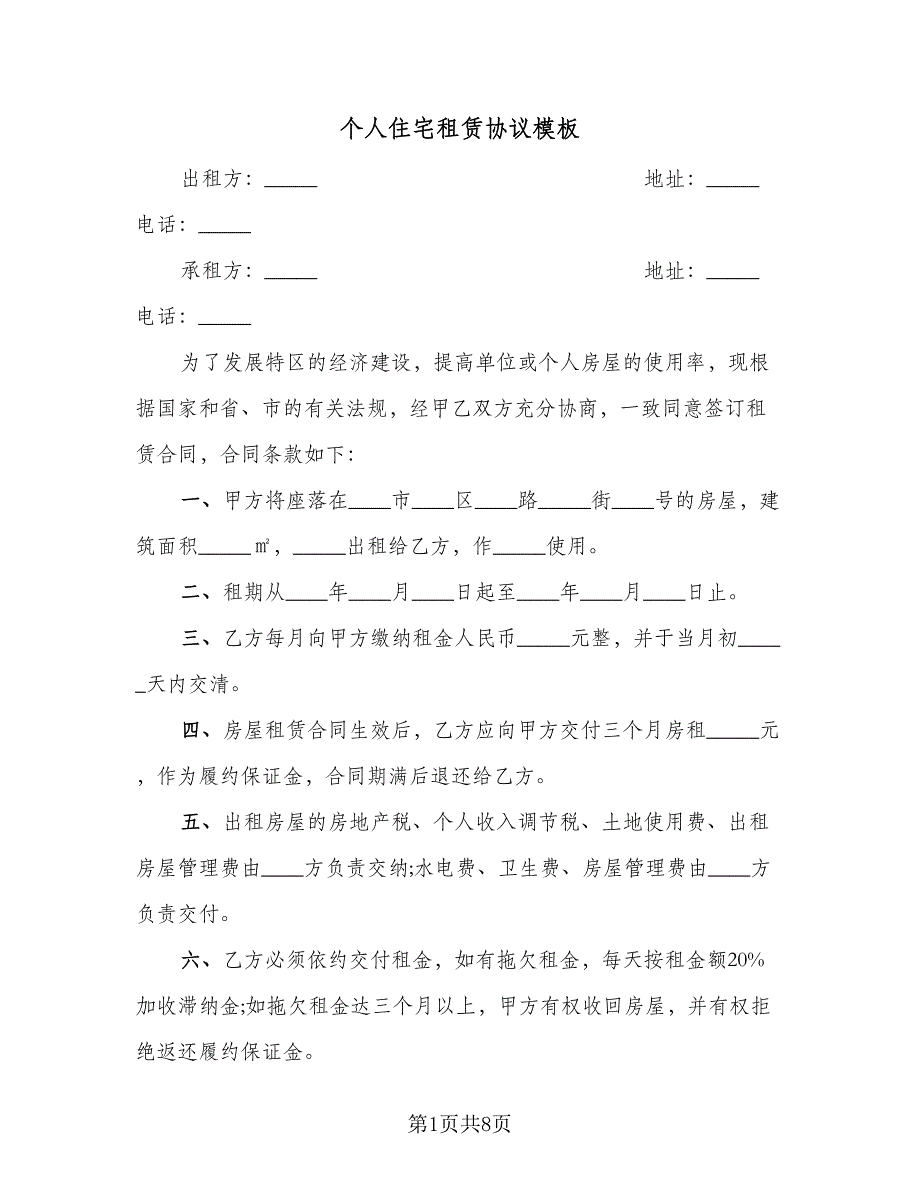 个人住宅租赁协议模板
出租方：_____ 地址：_____
电话：_____
承租方：_____ 地址：_____
电话：_____
为了发展特区的经济建设，提高单位或个人房屋的使用率，现根
据国家和省、市的有关法规，经甲乙双方充分协商，一致同意签订租
赁合同，合同条款如下：
一、甲方将座落在____市____区____路_____街____号的房屋，建
筑面积_____㎡，_____出租给乙方，作_____使用。
二、租期从____年____月____日起至____年____月____日止。
三、乙方每月向甲方缴纳租金人民币_____元整，并于当月初____
_天内交清。
四、房屋租赁合同生效后，乙方应向甲方交付三个月房租_____元
，作为履约保证金，合同期满后退还给乙方。
五、出租房屋的房地产税、个人收入调节税、土地使用费、出租
房屋管理费由____方负责交纳;水电费、卫生费、房屋管理费由____方
负责交付。
六、乙方必须依约交付租金，如有拖欠租金，每天按租金额20%
加收滞纳金;如拖欠租金达三个月以上，甲方有权收回房屋，并有权拒
绝返还履约保证金。
第1页共8页